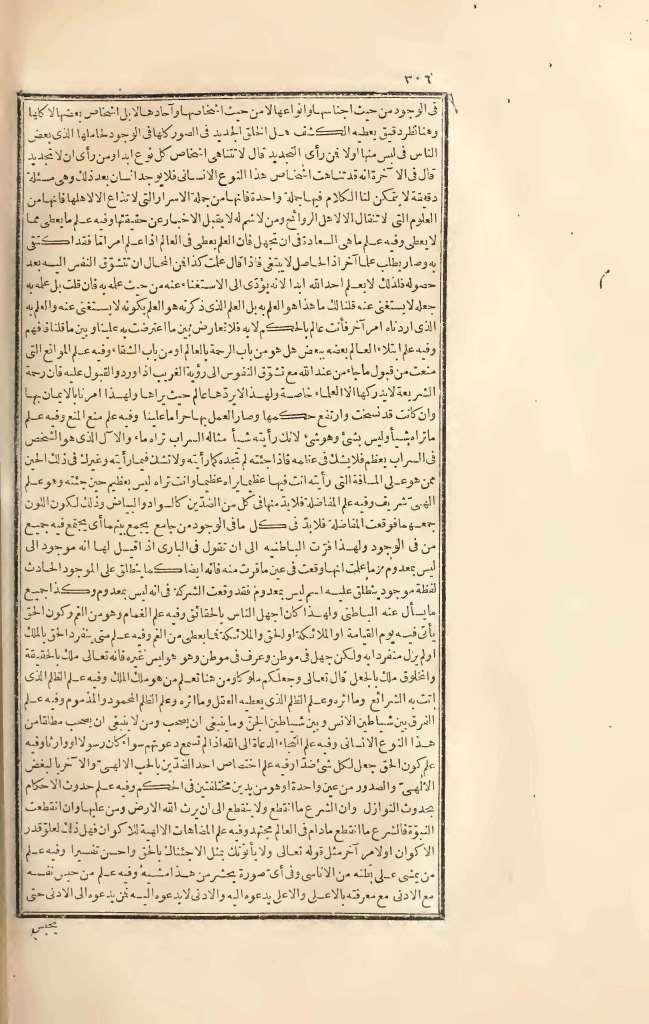 ٣٠٦
فى الوجود من حيث اجناسها وانواعها لا من حيث اشخاصها وآحادها لا بل اشخاص بعضها لا كلها
وهنا نظر دقيق يعطيه الكشف هل الخلق الجديد فى الصور كلها فى الوجود لحاملها الذى بعض
الناس فى لبس منها اولا فمن رأى التجديد قال لا تتناهى اشخاص كل نوع ابدا ومن رأى ان لا تجديد
قال فى الآخرة انه قد تناهت اشخاص هذا النوع الانسانى فلا يوجد انسان بعد ذلك وهى مسئلة
دقيقة لا يتمكن لنا الكلام فيها جملة واحدة فانها من جملة الاسرار التى لا تذاع الا لاهلها فانها من
العلوم التى لا تنقال الا لاهل الروائح ومن لا شم له لا يقبل الاخبار عن حقيقتها وفيه علم ما يعطى مما
لا يعطى وفيه علم ما هى السعادة فى ان تجهل فان العلم يعطى فى العالم اذا علم امرا تاما فقد اكتفى
به وصار يطلب علما آخر اذ الحاصل لا يبتغى فاذا قال علمت كذا فمن المحال ان تتشوّق النفس اليه بعد
حصوله فلذلك لا يعلم احد الله ابدا لانه يؤدّى الى الاستغناء عنه من حيث علمه به فان قلت بل علمه به
جعله لا يستغنى عنه قلنا لك ما هذا هو العلم به بل العلم الذى ذكرته هو العلم بكونه لا يستغنى عنه والعلم به
الذى اردناه امر آخر فأنت عالم بالحكم لا به فلا تعارض بين ما اعترضت به علينا وبين ما قلناه فافهم
وفيه علم ابتلاء العالم بعضه ببعض هل هو من باب الرحمة بالعالم او من باب الشقاء وفيه علم الموانع التى
منعت من قبول ما جاء من عند الله مع تشوّق النفوس الى رؤية الغريب اذا ورد والقبول عليه فان رحمة
الشريعة لا يدركها الا العلماء خاصة ولهذا لا يردّها عالم حيث يراها ولهذا امرنا بالايمان بها
وان كانت قد نسخت وارتفع حكمها وصار العمل بها حراما علينا وفيه علم منع المنع وفيه علم
ما تراه شيأ وليس بشئ وهو شئ لانك رأيته شيأ مثاله السراب تراه ماء والآل الذى هو الشخص
فى السراب يعظم فلا يشك فى عظمه فاذا جئته لم تجده كما رأيته ولا تشك فيما رأيته وغيرك فى ذلك الحين
ممن هو على المسافة التى رأيته انت فيها عظيما يراه عظيما وانت تراه ليس بعظيم حين جئته وهو علم
الهىّ شريف وفيه علم المفاضلة فلا بدّ منها فى كل من الضدّين كالسواد والبياض وذلك لكون اللون
جمعهما فوقعت المفاضلة فلا بدّ فى كل ما فى الوجود من جامع يجمع بينهما أى يجتمع فيه جميع
من فى الوجود ولهذا فرّت الباطنيه الى ان تقول فى البارى اذ اقيل لها انه موجود الى
ليس بمعدوم وما علمت انها وقعت فى عين ما فرت منه فانه ايضا كما ينطلق على الموجود الحادث
لفظة موجود ينطلق عليه اسم ليس بمعدوم فقد وقعت الشركة فى انه ليس بمعدوم وكذا جميع
ما يسأل عنه الباطنى ولهذا كان اجهل الناس بالحقائق وفيه علم الغمام وهو من الغم وكون الحق
يأتى فيه يوم القيامة او الملائكة او الحق والملائكة فما يعطى من الغم وفيه علم متى ينفرد الحق بالملك
او لم يزل منفردا به ولكن جهل فى موطن وعرف فى موطن وهو هو ليس غيره فانه تعالى ملك بالحقيقة
والمخلوق ملك بالجعل قال تعالى وجعلكم ملوكا ومن هنا تعلم من هو ملك الملك وفيه علم الظلم الذى
اتت به الشرائع وما اثره وعلم الظلم الذى يعطيه العقل وما اثره وعلم الظلم المحمود والمذموم وفيه علم
الفرق بين شياطين الانس وبين شياطين الجنّ وما ينبغى ان يصحب ومن لا ينبغى ان يصحب مطلقا من
هذا النوع الانسانى وفيه علم التجاء الدعاة الى الله اذا لم تسمع دعوتهم سواء كان رسولا او وارثا وفيه
علم كون الحق جعل لكل شئ ضدّا وفيه علم اختصاص احد الضدّين بالحب الالهىّ والآخر بالبغض
الالهىّ والصدور من عين واحدة او هو من يدين مختلفتين فى الحكم وفيه علم حدوث الاحكام
بحدوث النوازل وان الشرع ما انقطع ولا ينقطع الى ان يرث الله الارض ومن عليها وان انقطعت
النبوّة فالشرع ما انقطع ما دام فى العالم مجتهد وفيه علم المضاهات الالهية للاكوان فهل ذلك لعلوّ قدر
الاكوان او لامر آخر مثل قوله تعالى ولا يأتونك بمثل الا جئناك بالحق واحسن تفسيرا وفيه علم
من يمشى على بطنه من الاناسى وفى أىّ صورة يحشر من هذا مشيه وفيه علم من حبس نفسه
مع الادنى مع معرفته بالاعلى والاعلى يدعوه اليه والادنى لا يدعوه اليه فمن يدعوه الى الادنى حتى
يحبس